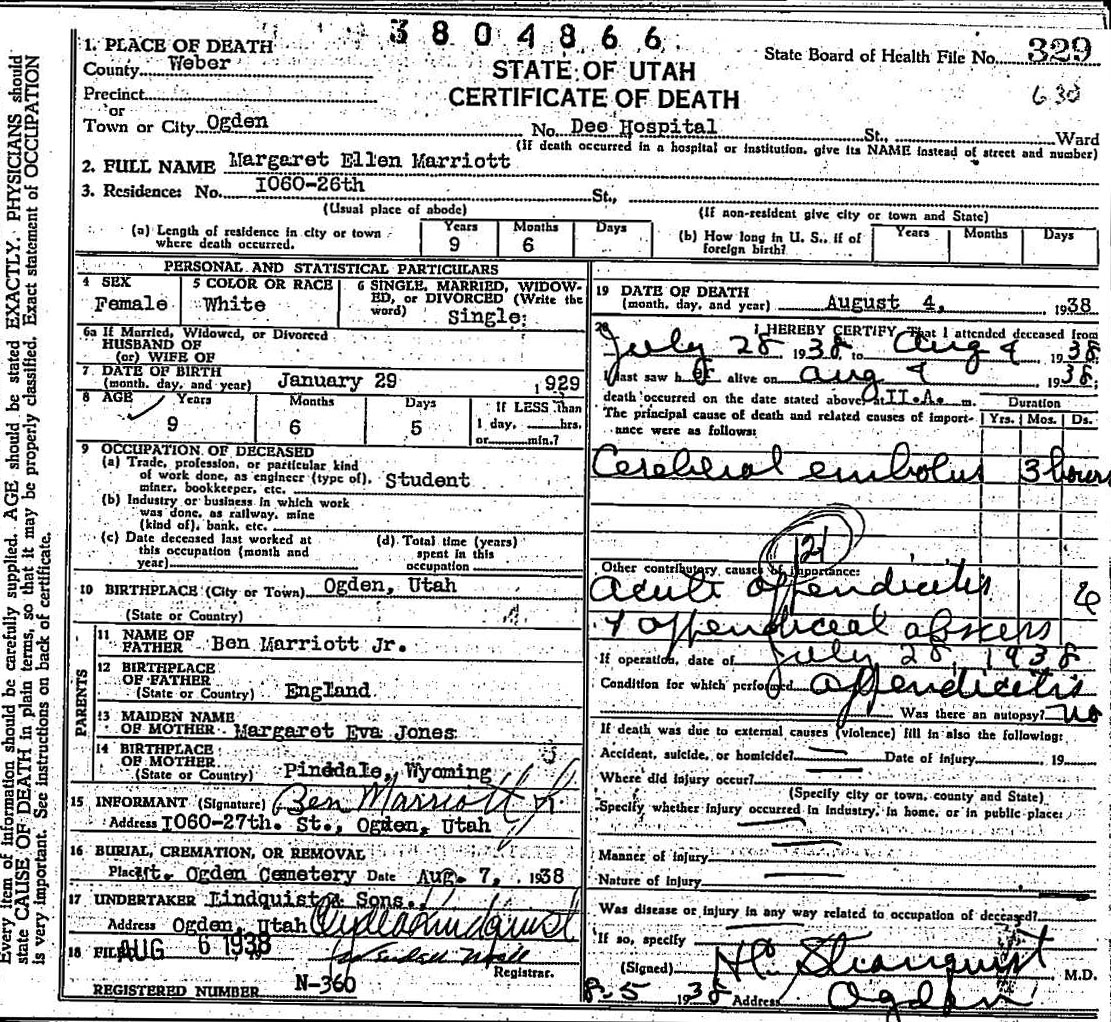 3804866
State Board of Health File No. 329
630
STATE OF UTAH
CERTIFICATE OF DEATH
1. PLACE OF DEATH
County Weber
Precinct
or
Town or City Ogden No. Dee Hospital St., Ward
(If death occurred in a hospital or institution, give its NAME instead of street and number)
2. FULL NAME Margaret Ellen Marriott
3. Residence: No. I060-26th St.,
(Usual place of abode) (If non-resident give city or town and State)
(a) Length of residence in city or town where death occurred. Years 9 Months 6 Days
(b) How long in U. S., if of foreign birth? Years Months Days
PERSONAL AND STATISTICAL PARTICULARS
4 SEX Female
5 COLOR OR RACE White
6 SINGLE, MARRIED, WIDOW-
ED, or DIVORCED (Write the
word) Single
6a If Married, Widowed, or Divorced
HUSBAND OF
(or) WIFE OF
7 DATE OF BIRTH
(month, day, and year) January 29 1929
8 AGE Years Months Days If LESS than
9 6 5 1 day, hrs.
or min.?
9 OCCUPATION OF DECEASED
(a) Trade, profession, or particular kind
of work done, as engineer (type of), Student
miner, bookkeeper, etc.
(b) Industry or business in which work
was done, as railway, mine
(kind of), bank, etc.
(c) Date deceased last worked at
this occupation (month and
year)
(d) Total time (years)
spent in this
occupation
10 BIRTHPLACE (City or Town) Ogden, Utah
(State or Country)
PARENTS
11 NAME OF
FATHER Ben Marriott Jr.
12 BIRTHPLACE
OF FATHER
(State or Country) England
13 MAIDEN NAME
OF MOTHER Margaret Eva Jones
14 BIRTHPLACE
OF MOTHER
(State or Country) Pinedale, Wyoming
15 INFORMANT (Signature) Ben Marriott Jr.
Address I060-27th. St., Ogden, Utah
16 BURIAL, CREMATION, OR REMOVAL
Place Ogden Cemetery Date Aug. 7, 1938
17 UNDERTAKER Lindquist & Sons.
Address Ogden, Utah Lindquist
18 FILED AUG 6 1938
Registrar.
REGISTERED NUMBER N-360
19 DATE OF DEATH
(month, day, and year) August 4, 1938
20 I HEREBY CERTIFY, That I attended deceased from
July 28 1938 to Aug 4, 1938
I last saw her alive on Aug 4 1938;
death occurred on the date stated above at II.A. m. Duration
The principal cause of death and related causes of import- Yrs. Mos. Ds.
ance were as follows:
Cerebral embolus 3 hours
121
Other contributory causes of importance:
Acute appendicitis
& appendiceal abscess
If operation, date of July 28, 1938
Condition for which performed appendicitis
Was there an autopsy? no
If death was due to external causes (violence) fill in also the following:
Accident, suicide, or homicide? Date of injury 19
Where did injury occur?
(Specify city or town, county and State)
Specify whether injury occurred in industry, in home, or in public place:
Manner of injury
Nature of injury
Was disease or injury in any way related to occupation of deceased?
If so, specify
(Signed) Stranquist M.D.
8-5 1938 Address Ogden
Every item of information should be carefully supplied. AGE should be stated EXACTLY. PHYSICIANS should
state CAUSE OF DEATH in plain terms, so that it may be properly classified. Exact statement of OCCUPATION
is very important. See instructions on back of certificate.